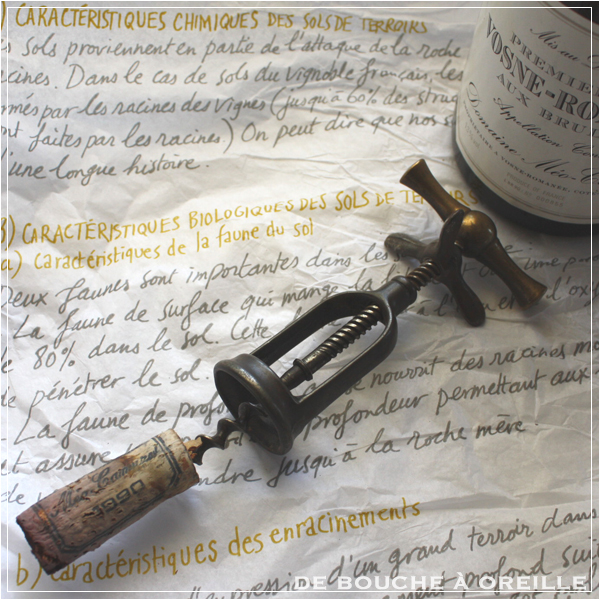 ) CARACTÉRISTIQUES CHIMIQUES DES SOLS DE TERROIRS
s sols proviennent en partie de l'attaque de la roche
acines. Dans le cas de sols du vignoble français, les
rmés par les racines des vignes (jusqu'à 60% des struc
nt faites par les racines) On peut dire que nos s
'une longue histoire.
) CARACTÉRISTIQUES BIOLOGIQUES DES SOLS DE TERROIRS
a) Caractéristiques de la faune du sol
Deux faunes sont importantes dans les
La faune de surface qui mange la
80% dans le sol. Cette
de pénétrer le sol.
La faune de profo se nourrit des racines mo
et assure profondeur permettant aux
ndre jusqu'à la roche mère.
b) Caractéristiques des enracinements
"expression d'un grand terroir dans
ment profond
Mis au
PREMIE
VOSNE-RO
AUX BRUL
Appellation Con
Domaine Méo-C
Méo-Camuzet
1980
DE BOUCHE À OREILLE